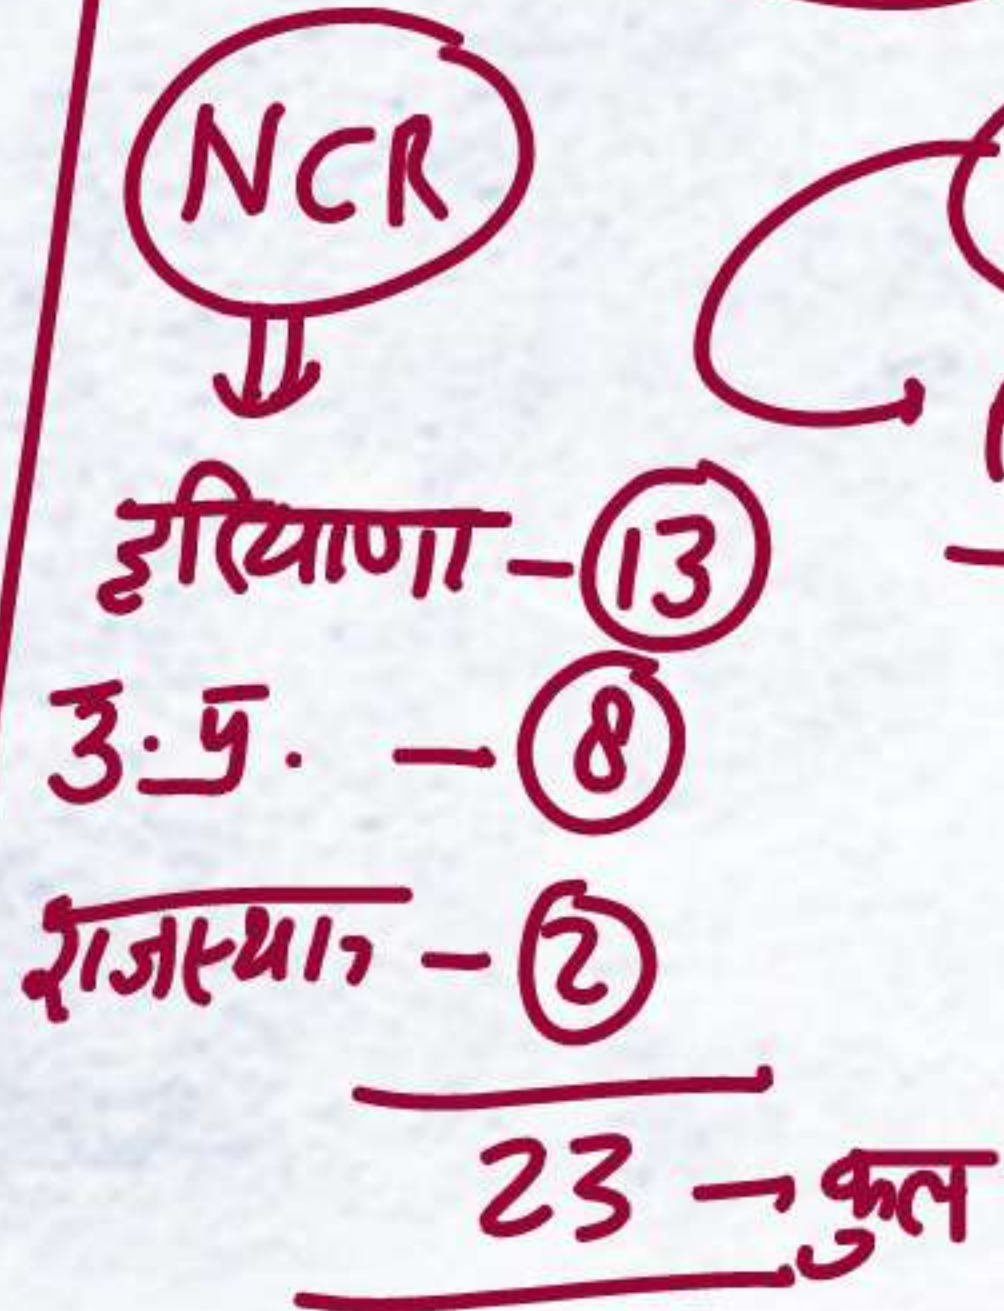 NCR
हरियाणा - 13
उ.प्र. - 8
राजस्थान - 2
23 → कुल